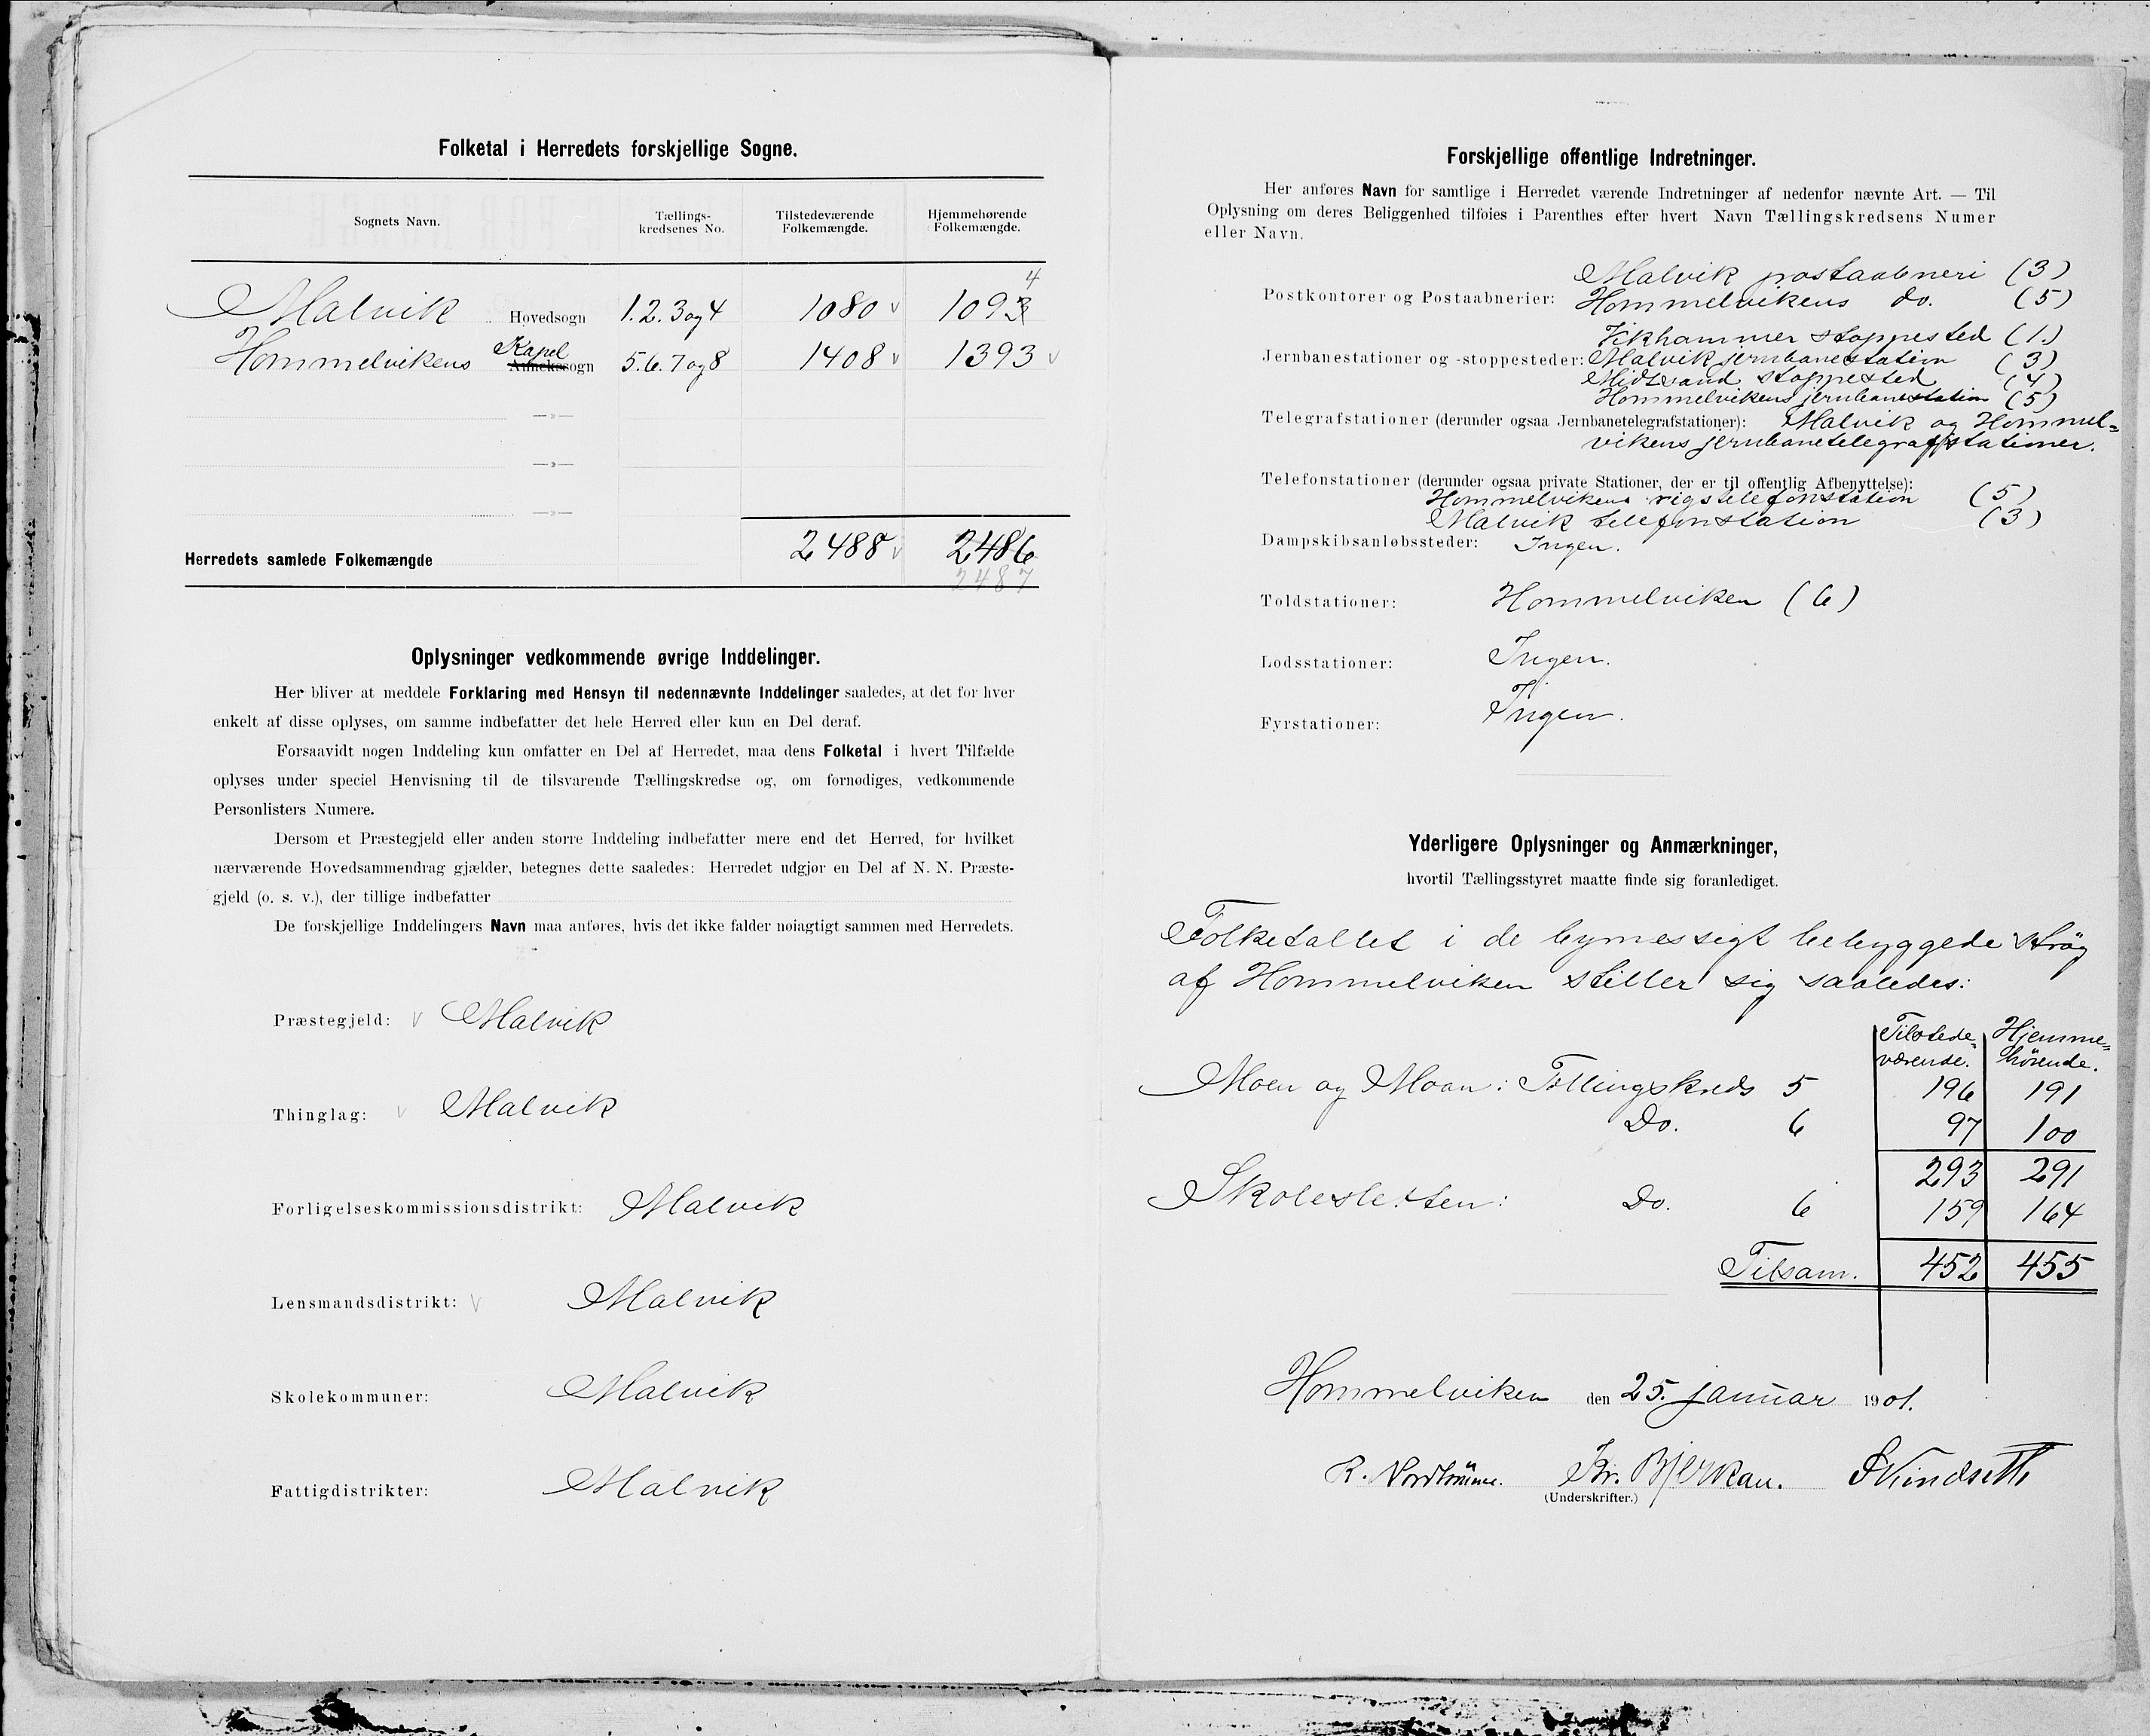 Folketal i Herredets forskjellige Sogne.
Sognets Navn. Tællings-kredsenes No. Tilstedeværende Folkemængde. Hjemmehørende Folkemængde.
4
Malvik Hovedsogn 1. 2. 3 og 4 1080 1093
Hommelvikens Kapel Annekssogn 5. 6. 7 og 8 1408 1393
—»—
—»—
—»—
Herredets samlede Folkemængde 2488 2486
2487
Oplysninger vedkommende øvrige Inddelinger.
Her bliver at meddele Forklaring med Hensyn til nedennævnte Inddelinger saaledes, at det for hver
enkelt af disse oplyses, om samme indbefatter det hele Herred eller kun en Del deraf.
Forsaavidt nogen Inddeling kun omfatter en Del af Herredet, maa dens Folketal i hvert Tilfælde
oplyses under speciel Henvisning til de tilsvarende Tællingskredse og, om fornødiges, vedkommende
Personlisters Numere.
Dersom et Præstegjeld eller anden større Inddeling indbefatter mere end det Herred, for hvilket
nærværende Hovedsammendrag gjælder, betegnes dette saaledes: Herredet udgjør en Del af N. N. Præste-
gjeld (o. s. v.), der tillige indbefatter
De forskjellige Inddelingers Navn maa anføres, hvis det ikke falder nøiagtigt sammen med Herredets.
Præstegjeld: Malvik
Thinglag: Malvik
Forligelseskommissionsdistrikt: Malvik
Lensmandsdistrikt: Malvik
Skolekommuner: Malvik
Fattigdistrikter: Malvik
Forskjellige offentlige Indretninger.
Her anføres Navn for samtlige i Herredet værende Indretninger af nedenfor nævnte Art. — Til
Oplysning om deres Beliggenhed tilføies i Parenthes efter hvert Navn Tællingskredsens Numer
eller Navn.
Malvik postaabneri (3)
Postkontorer og Postaabnerier: Hommelvikens do. (5)
Vikhammer stoppested (1.)
Jernbanestationer og -stoppesteder: Malvik jernbanestation (3)
Midtsand stoppested (4)
Hommelvikens jernbanestation (5)
Telegrafstationer (derunder ogsaa Jernbanetelegrafstationer): Malvik og Hommel=
vikens jernbanetelegrafstationer.
Telefonstationer (derunder ogsaa private Stationer, der er til offentlig Afbenyttelse):
Hommelvikens rigstelefonstation (5)
Malvik telefonstation (3)
Dampskibsanløbssteder: Ingen.
Toldstationer: Hommelviken (6)
Lodsstationer: Ingen.
Fyrstationer: Ingen.
Yderligere Oplysninger og Anmærkninger,
hvortil Tællingsstyret maatte finde sig foranlediget.
Folketallet i de bymessigt bebyggede strøg
af Hommelviken stiller sig saaledes:
Tilstede= Hjemme=
værende. hørende.
Moen og Moan: Tellingskreds 5 196 191
Do. 6 97 100
293 291
Skolesletten: Do. 6 159 164
Tilsam. 452 455
Hommelviken den 25. januar 1901.
Kr. Bjerkan.
(Underskrifter.)